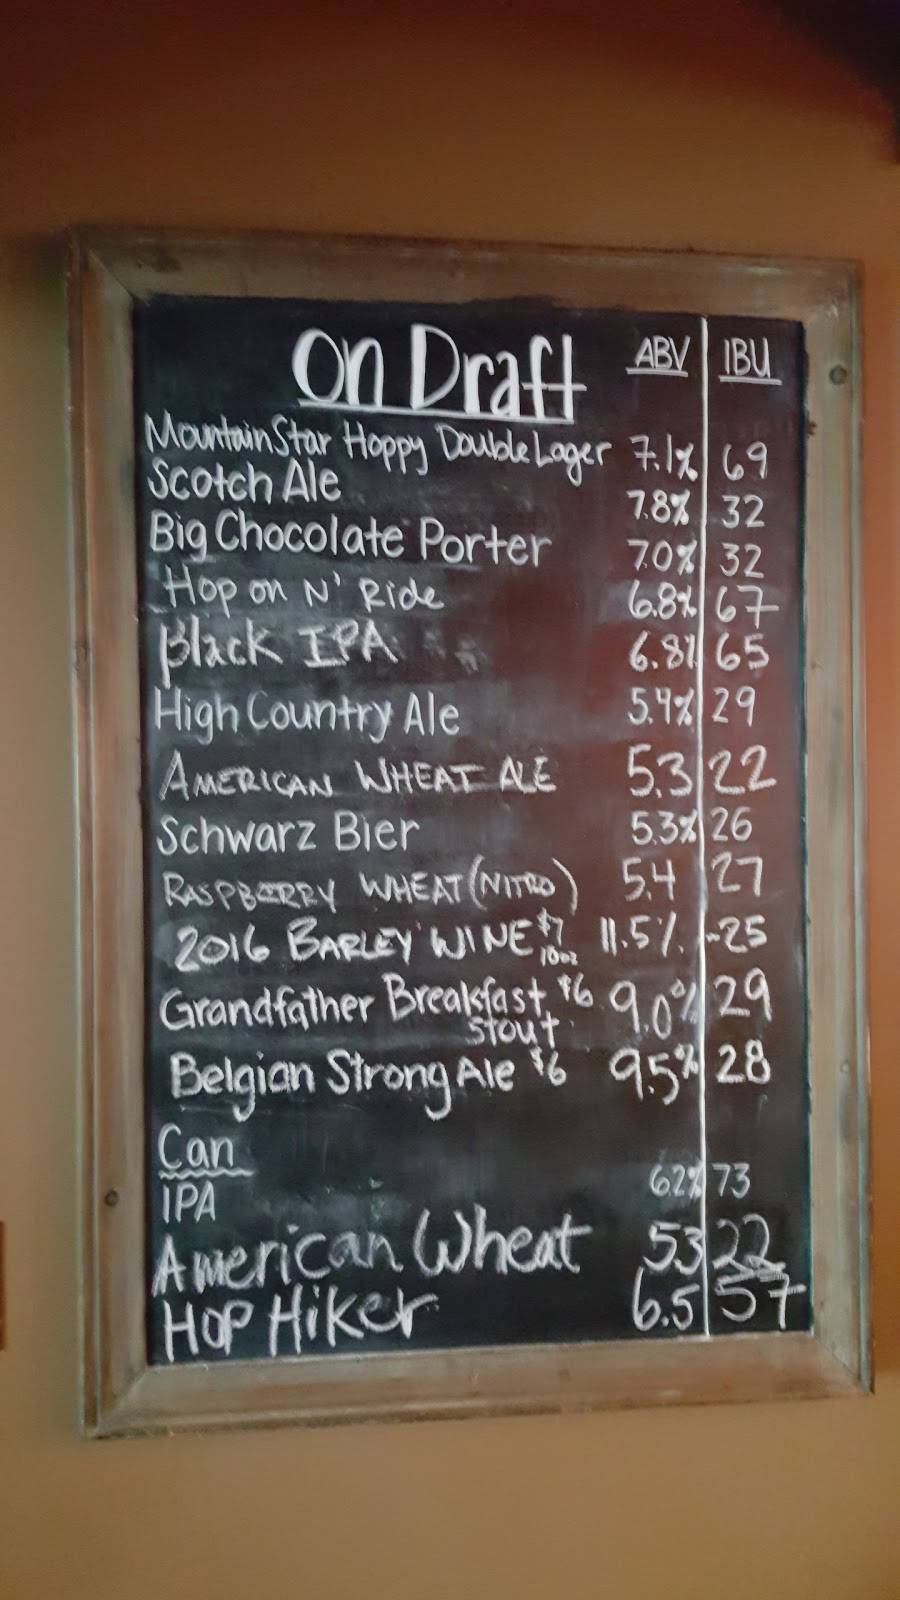 On Draft ABV IBU
Mountain Star Hoppy Double Lager 7.1% 69
Scotch Ale 7.8% 32
Big Chocolate Porter 7.0% 32
Hop on N' Ride 6.8% 67
Black IPA 6.8% 65
High Country Ale 5.4% 29
AMERICAN WHEAT ALE 5.3 22
Schwarz Bier 5.3% 26
RASPBERRY WHEAT (NITRO) 5.4 27
2016 BARLEY WINE $7 10oz 11.5% ~25
Grandfather Breakfast $6 9.0% 29
Stout
Belgian Strong Ale $6 9.5% 28
Can
IPA 6.2% 73
American Wheat 5.3 22
HOP HIKER 6.5 57